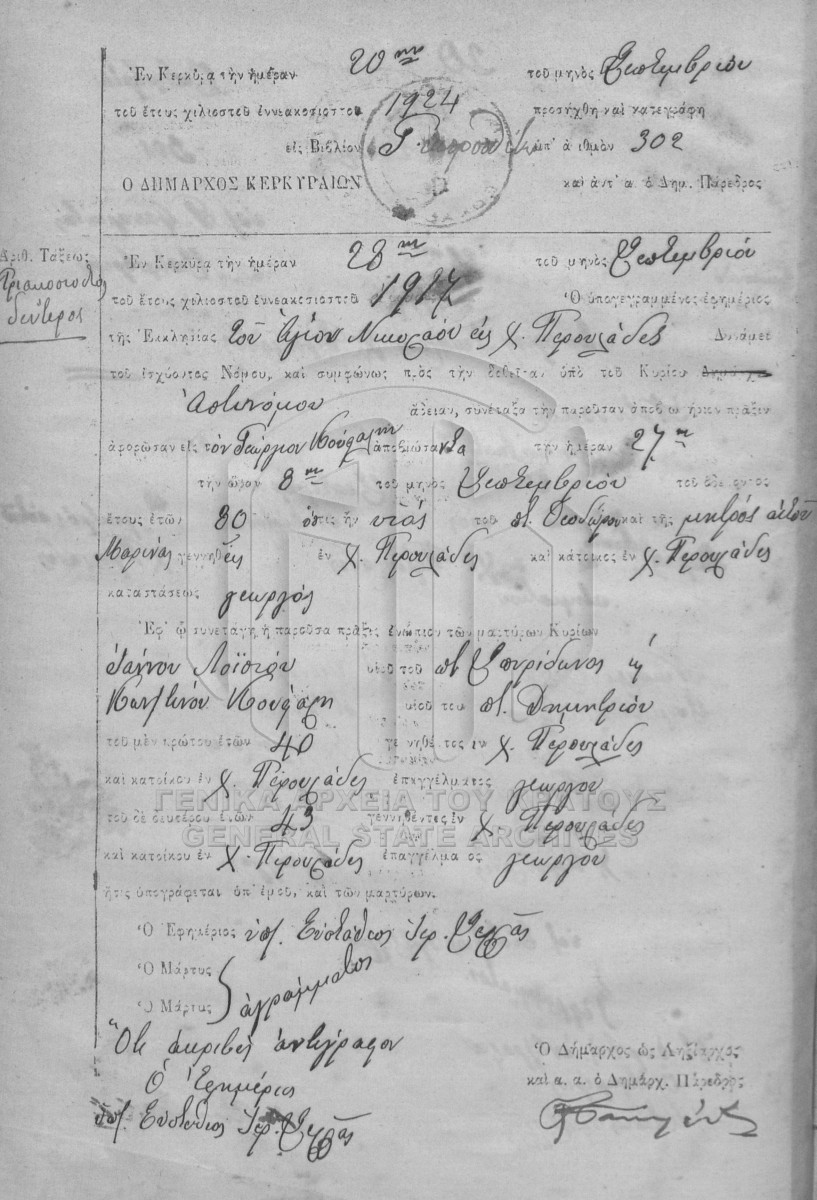 Ἐν Κερκύρᾳ τὴν ἡμέραν 20ην τοῦ μηνὸς Σεπτεμβρίου
τοῦ ἔτους χιλιοστοῦ ἐννεακοσιοστοῦ 1924 προσήχθη καὶ κατεγράφη
εἰς Βιβλίον Γ. ὑπ' ἀριθμὸν 302
Ο ΔΗΜΑΡΧΟΣ ΚΕΡΚΥΡΑΙΩΝ καὶ ἀντ' α. ὁ Δημ. Πάρεδρος
Ἀριθ. Τάξεως
Τριακοστὸς
δεύτερος
Ἐν Κερκύρᾳ τὴν ἡμέραν 28ην τοῦ μηνὸς Σεπτεμβρίου
τοῦ ἔτους χιλιοστοῦ ἐννεακοσιοστοῦ 1917 Ὁ ὑπογεγραμμένος ἐφημέριος
τῆς Ἐκκλησίας τοῦ Ἁγίου Νικολάου εἰς χ. Περουλάδες Δυνάμει
τοῦ ἰσχύοντος Νόμου, καὶ συμφώνως πρὸς τὴν δοθεῖσαν ὑπὸ τοῦ Κυρίου Δημάρχου
Ἀστυνόμου ἄδειαν, συνέταξα τὴν παροῦσαν ἀποβιωτήριον πρᾶξιν
ἀφορῶσαν εἰς τὸν Γεώργιον ἀποβιώσαντα τὴν ἡμέραν 27ην
τὴν ὥραν 8ην τοῦ μηνὸς Σεπτεμβρίου τοῦ ὁδεύοντος
ἔτους ἐτῶν 80 ὅστις ἦν υἱὸς τοῦ ποτ. Θεοδώρου καὶ τῆς μητρός αὐτοῦ
Μαρίνας γεννηθεὶς ἐν χ. Περουλάδες καὶ κάτοικος ἐν χ. Περουλάδες
καταστάσεως γεωργός
Ἐφ' ᾧ συνετάγη ἡ παροῦσα πρᾶξις ἐνώπιον τῶν μαρτύρων Κυρίων
Ἰωάννου υἱοῦ τοῦ ποτ. Σπυρίδωνος κ
Κων/τίνου υἱοῦ του ποτ. Δημητρίου
τοῦ μὲν πρώτου ἐτῶν 40 γεννηθέντος ἐν χ. Περουλάδες
καὶ κατοίκου ἐν χ. Περουλάδες ἐπαγγέλματος γεωργοῦ
ΓΕΝΙΚΑ ΑΡΧΕΙΑ ΤΟΥ ΚΡΑΤΟΥΣ
τοῦ δὲ δευτέρου ἐτῶν 43 γεννηθέντος ἐν χ. Περουλάδες
GENERAL STATE ARCHIVES
καὶ κατοίκου ἐν χ. Περουλάδες ἐπαγγέλματος γεωργοῦ
ἥτις ὑπογράφεται ὑπ' ἐμοῦ, καὶ τῶν μαρτύρων.
Ὁ Ἐφημέριος ὑπ/. Εὐστάθιος Ἱερ.
Ὁ Μάρτυς
ἀγράμματοι
Ὁ Μάρτυς
Ὅτι ἀκριβὲς ἀντίγραφον
Ὁ Ἐφημέριος
ὑπ/. Εὐστάθιος Ἱερ.
Ὁ Δήμαρχος ὡς Ληξίαρχος
καὶ α. α. ὁ Δημάρχ. Πάρεδρος